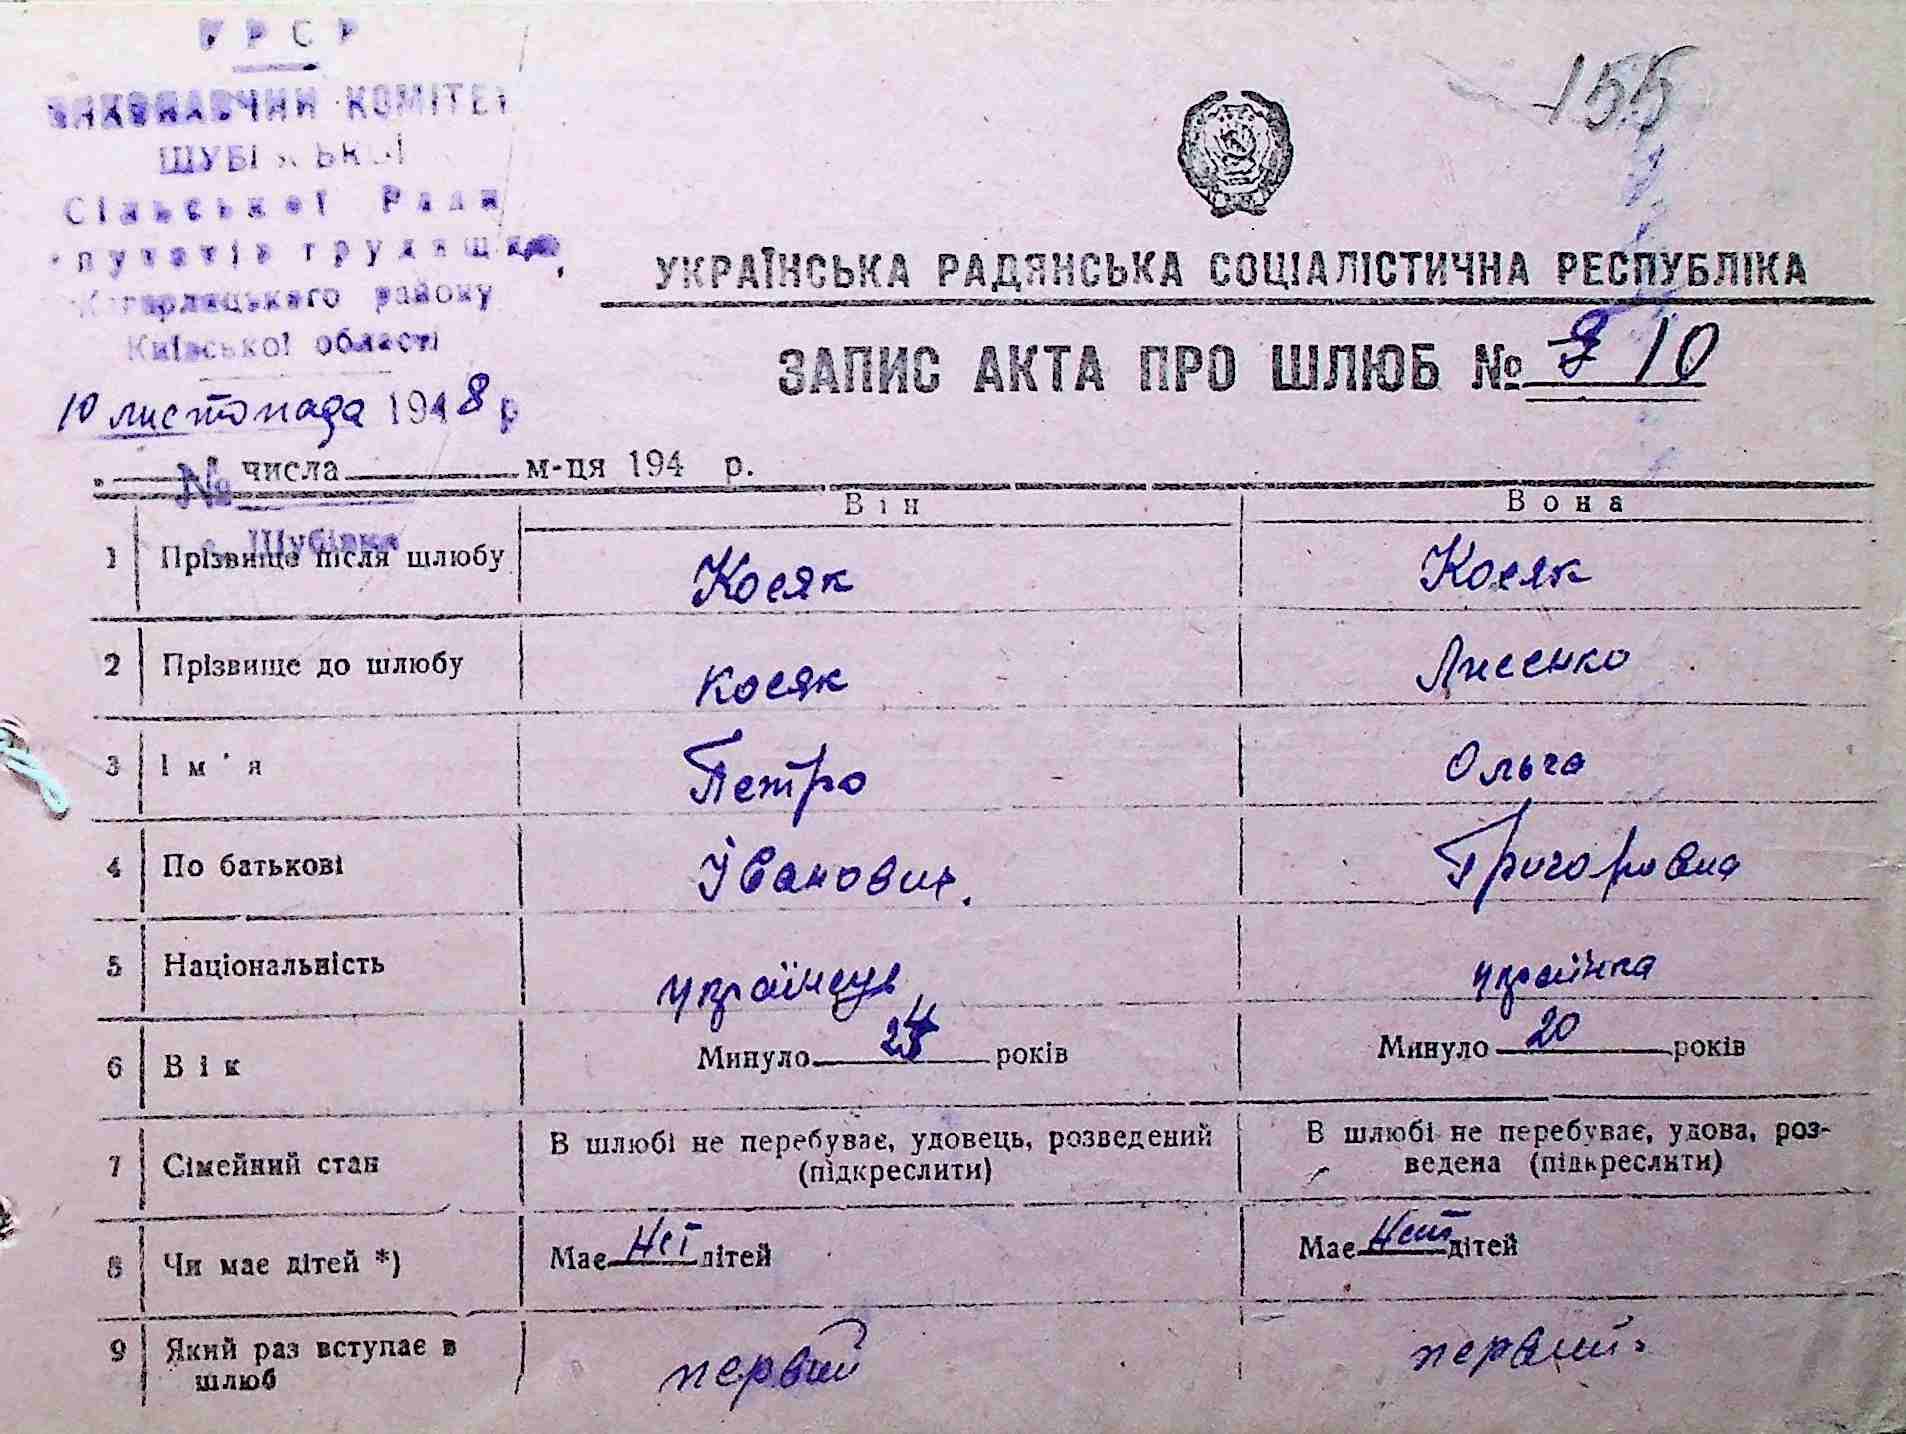 УРСР
155
ВИКОНАВЧИЙ КОМІТЕТ
ШУБІВСЬКОЇ
Сільської Ради
путатів трудящих
Кагарлицького району
Київської області
10 листопада 1948 р
УКРАЇНСЬКА РАДЯНСЬКА СОЦІАЛІСТИЧНА РЕСПУБЛІКА
ЗАПИС АКТА ПРО ШЛЮБ № 10
№ числа м-ця 194 р.
с. Шубівка
Він Вона
1 Прізвище після шлюбу Косяк Косяк
2 Прізвище до шлюбу Косяк Лисенко
3 Ім'я Петро Ольга
4 По батькові Іванович. Григоровна
5 Національність українець українка
6 Вік Минуло 24 років Минуло 20 років
7 Сімейний стан В шлюбі не перебуває, удовець, розведений (підкреслити) В шлюбі не перебуває, удова, роз-
ведена (підкреслити)
8 Чи має дітей *) Має нет дітей Має нет дітей
9 Який раз вступає в шлюб первий первий